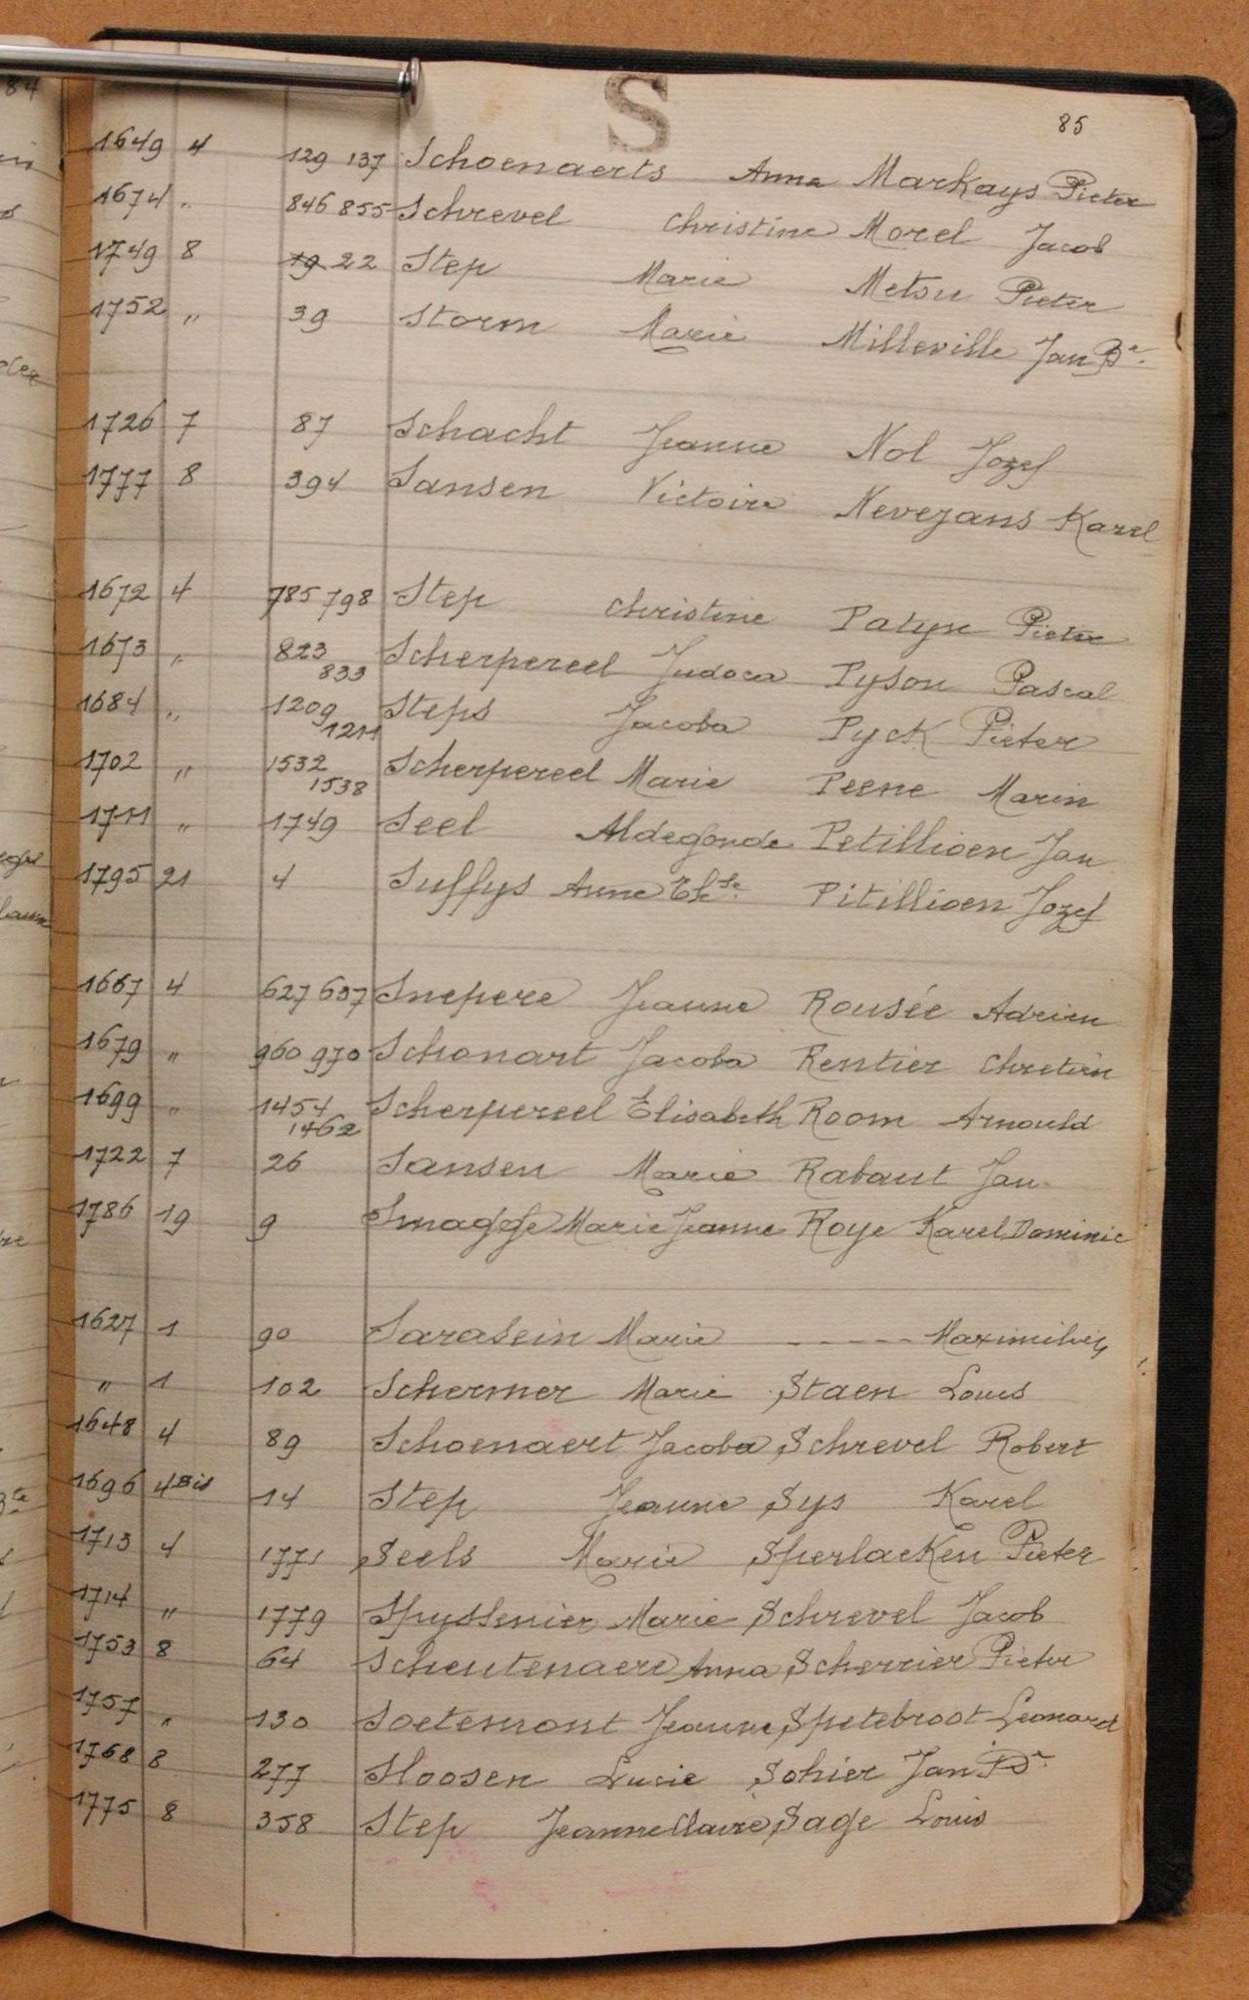 S
85
1649 4 129 137 Schoenaerts Anna Markays Pieter
1674 " 846 855 Schrevel Christine Morel Jacob
1749 8 19 22 Step Marie Metsu Pieter
1752 " 39 Storm Marie Milleville Jan Bte.
1726 7 87 Schacht Jeanne Nol Jozef
1777 8 394 Sansen Victoire Nevejans Karel
1672 4 785 798 Step Christine Patyn Pieter
1673 " 823 833 Scherpereel Judoca Pyson Pascal
1684 " 1209 1211 Steps Jacoba Pyck Pieter
1702 " 1532 1538 Scherpereel Marie Peene Marin
1711 " 1749 Seel Aldegonde Petillioen Jan
1795 21 4 Suffys Anne Thse. Pitillioen Jozef
1667 4 627 637 Snepere Jeanne Rousée Adrien
1679 " 960 970 Schonart Jacoba Rentier Chretien
1699 " 1454 1462 Scherpereel Elisabeth Room Arnould
1722 7 26 Sansen Marie Rabaut Jan
1786 19 9 Smagge Marie Jeanne Roye Karel Dominic
1627 1 90 Sarasein Marie - - - - -
" 1 102 Schermer Marie Staen Louis
1648 4 89 Schoenaert Jacoba Schrevel Robert
1696 4 Bis 14 Step Jeanne Sys Karel
1713 4 1771 Seels Marie Sperlacken Pieter
1714 " 1779 Spyssenier Marie Schrevel Jacob
1753 8 64 Scheutenaere Anna Scherrier Pieter
1757 " 130 Soetemont Jeanne Spetebroot Leonard
1768 8 277 Sloosen Lucie Sohier Jan Bte.
1775 8 358 Step Jeanne Claire Sage Louis